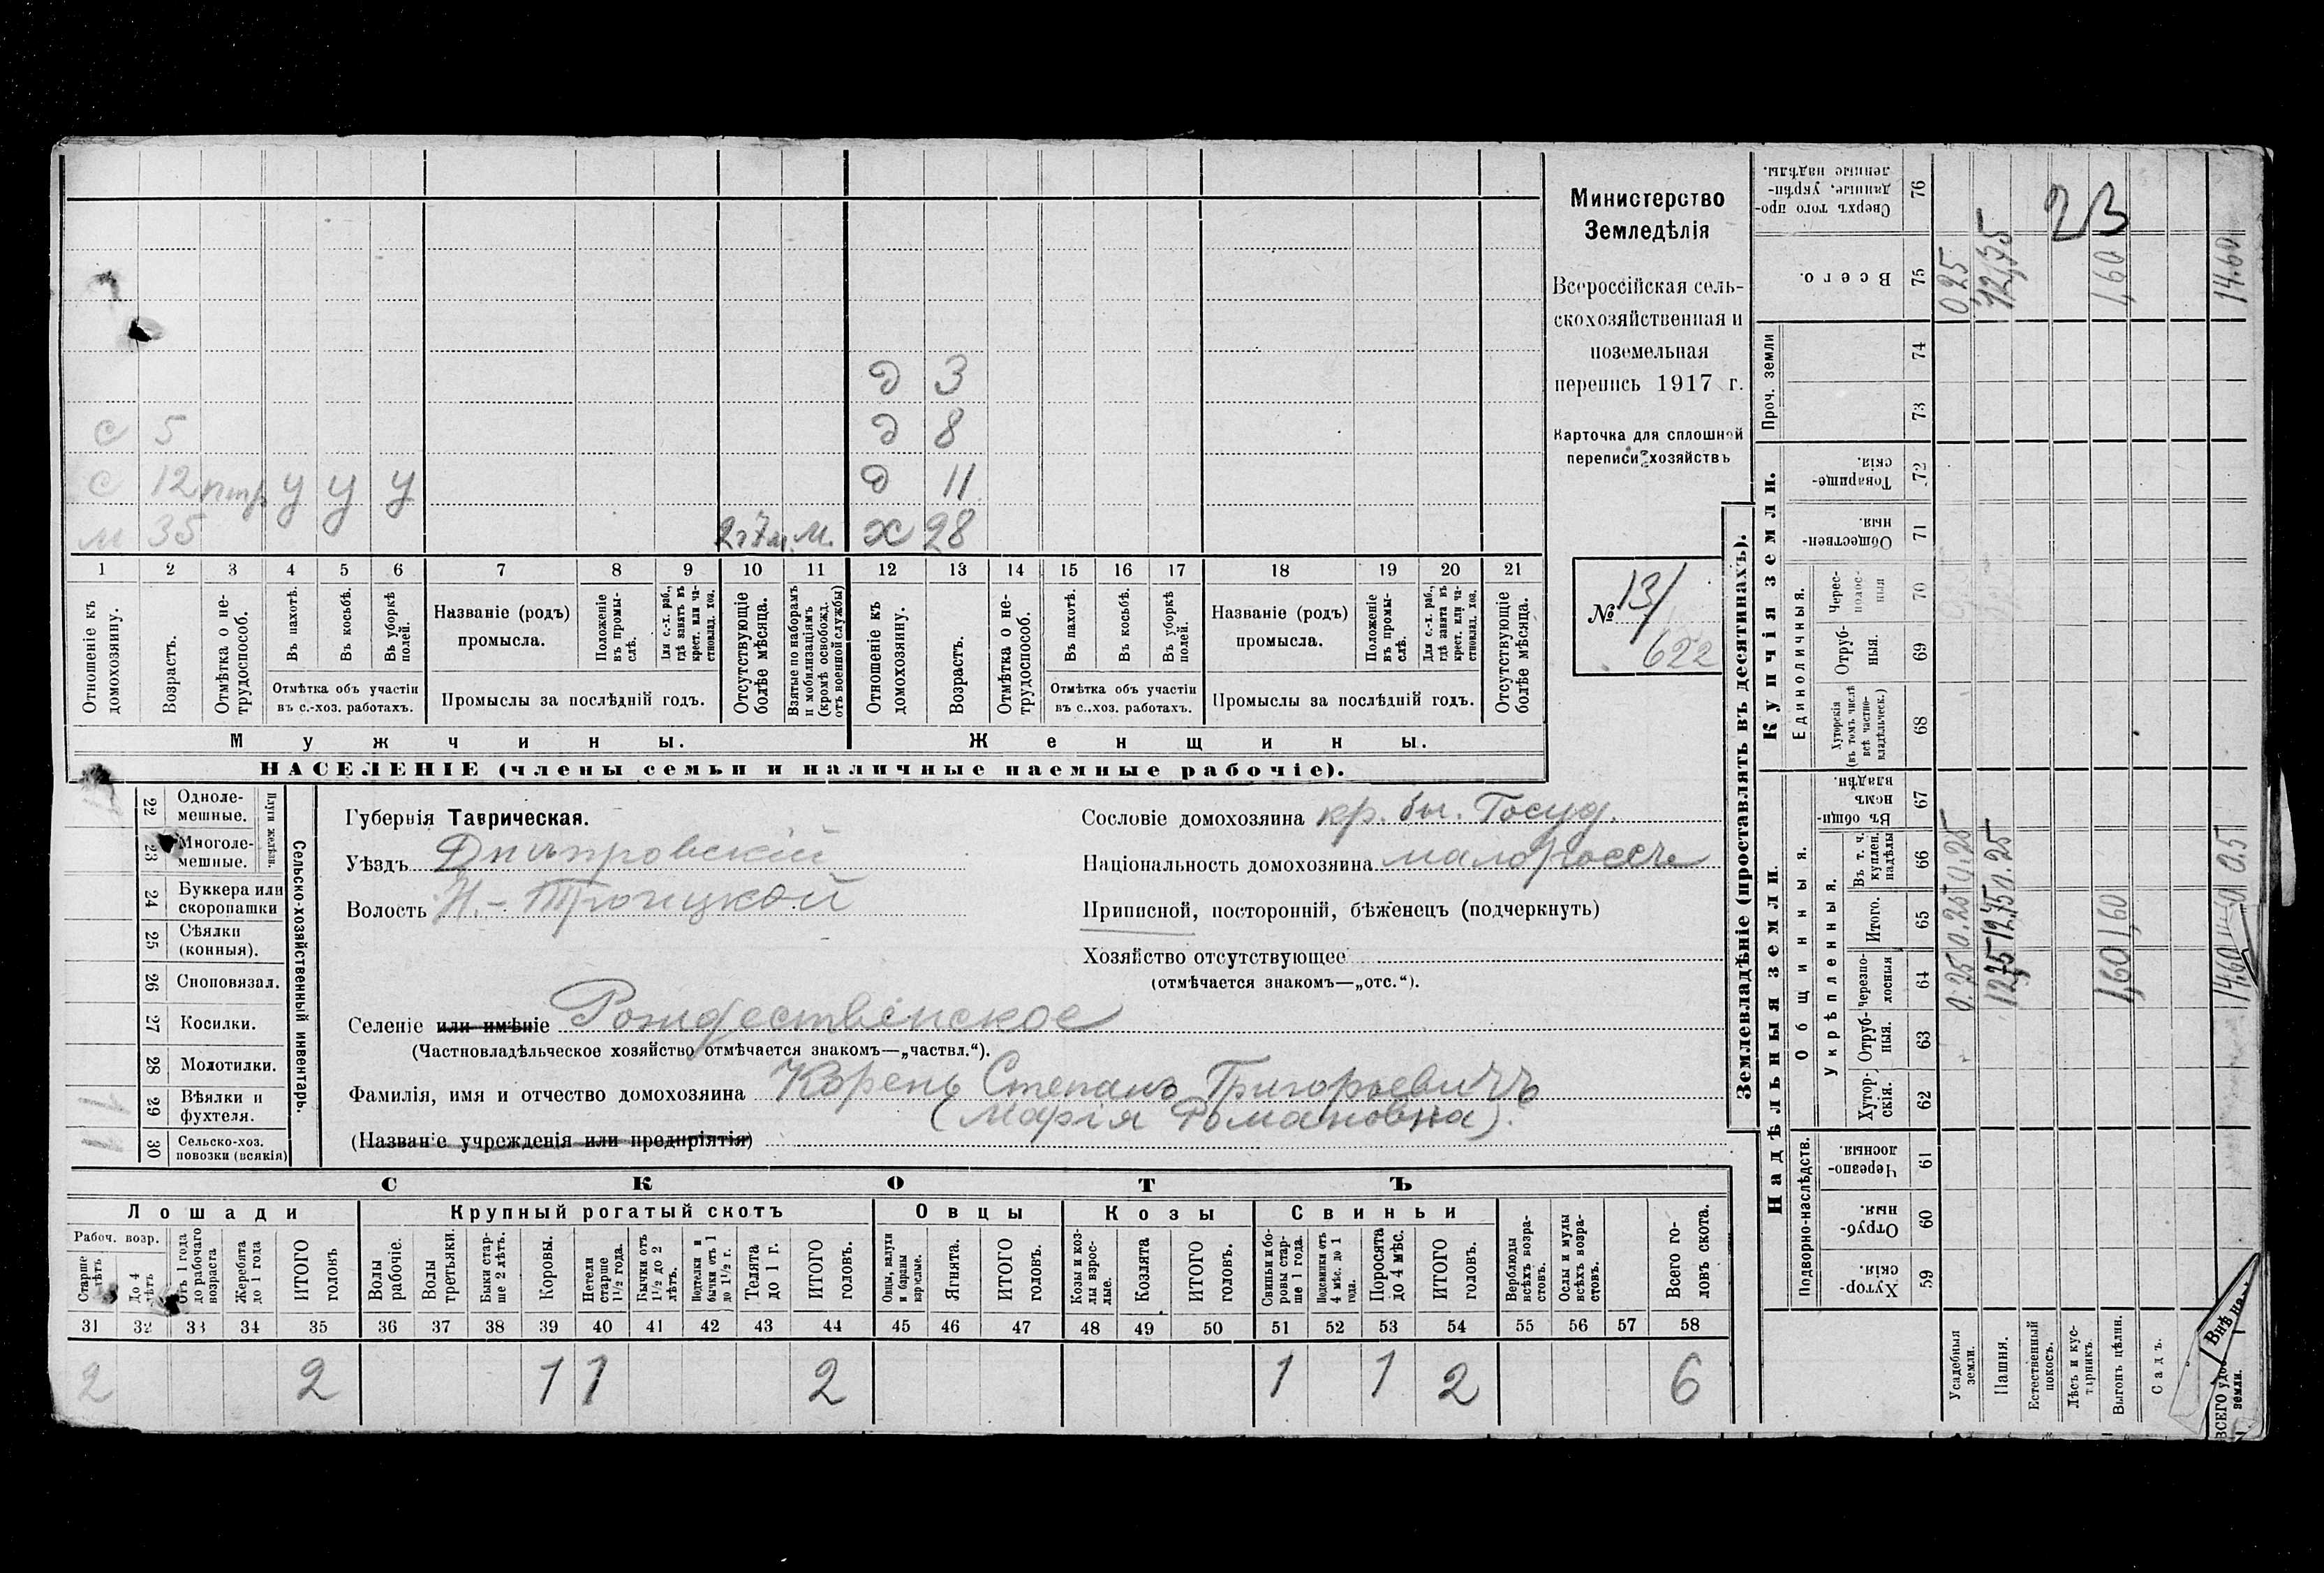 Министерство
Земледѣлія
Всероссійская сель-
скохозяйственная и
поземельная
перепись 1917 г.
Карточка для сплошной
переписи хозяйствъ
№ 131
622
д 3
с 5 д 8
с 12 у у у д 11
м 35 м. х 28
1 2 3 4 5 6 7 8 9 10 11 12 13 14 15 16 17 18 19 20 21
Отношеніе къ домохозяину.
Возрастъ.
Отмѣтка о не-трудоспособ.
Въ пахотѣ.
Въ косьбѣ.
Въ уборкѣ полей.
Отмѣтка объ участіи
въ с.-хоз. работахъ.
Названіе (родъ)
промысла.
Положеніе въ промы-слѣ.
Для с.-х. раб., гдѣ занятъ въ крест. или ча-стновлад. хоз.
Промыслы за послѣдній годъ.
Отсутствующіе болѣе мѣсяца.
Взятые по наборамъ и мобилизаціямъ (кромѣ освобожд. отъ военной службы)
Отношеніе къ домохозяину.
Возрастъ.
Отмѣтка о не-трудоспособ.
Въ пахотѣ.
Въ косьбѣ.
Въ уборкѣ полей.
Отмѣтка объ участіи
въ с.-хоз. работахъ.
Названіе (родъ)
промысла.
Положеніе въ промы-слѣ.
Для с.-х. раб., гдѣ занята въ крест. или ча-стновлад. хоз.
Промыслы за послѣдній годъ.
Отсутствующіе болѣе мѣсяца.
Мужчины. Женщины.
НАСЕЛЕНІЕ (члены семьи и наличные наемные рабочіе).
Сельско-хозяйственный инвентарь.
Плуги желѣзн.
22 Одноле-мешные.
23 Многоле-мешные.
24 Буккера или скоропашки
25 Сѣялки (конныя).
26 Сноповязал.
27 Косилки.
28 Молотилки.
29 Вѣялки и фухтеля. 1
30 Сельско-хоз. повозки (всякія) 1
Губернія Таврическая.
Уѣздъ Днѣпровскій
Волость Н.-Троицкой
Сословіе домохозяина кр. бы. Госуд.
Національность домохозяина малороссъ
Приписной, посторонній, бѣженецъ (подчеркнуть)
Хозяйство отсутствующее
(отмѣчается знакомъ—„отс.“).
Селеніе или имѣніе Рождественское
(Частновладѣльческое хозяйство отмѣчается знакомъ—„частвл.“).
Фамилія, имя и отчество домохозяина Корень Степанъ Григорьевичъ
(Марія Романовна).
(Названіе учрежденія или предпріятія)
СКОТЪ
Лошади Крупный рогатый скотъ Овцы Козы Свиньи
Рабоч. возр.
Старше 4 лѣтъ
До 4 лѣтъ
Отъ 1 года до рабочаго возраста
Жеребята до 1 года
ИТОГО головъ
Волы рабочіе.
Волы третьяки.
Быки стар-ше 2 лѣтъ.
Коровы.
Нетели старше 1½ года.
Бычки отъ 1½ до 2 лѣтъ.
Подтелки и бычки отъ 1 до 1½ г.
Телята до 1 г.
ИТОГО головъ.
Овцы, валухи и бараны взрослые.
Ягнята.
ИТОГО головъ.
Козы и коз-лы взрос-лые.
Козлята
ИТОГО головъ.
Свиньи и бо-ровы стар-ше 1 года.
Подсвинки отъ 4 мѣс. до 1 года.
Поросята до 4 мѣс.
ИТОГО головъ.
Верблюды всѣхъ возра-стовъ.
Ослы и мулы всѣхъ возра-стовъ.
Всего го-ловъ скота.
31 32 33 34 35 36 37 38 39 40 41 42 43 44 45 46 47 48 49 50 51 52 53 54 55 56 57 58
2 2 1 1 2 1 1 2 6
Землевладѣніе (проставлять въ десятинахъ).
Надѣльныя земли. Купчія земли. Проч. земли
Подворно-наслѣдств. Общинныя. Единоличныя.
Укрѣпленныя.
59 Хутор-скія.
60 Отруб-ныя.
61 Черезпо-лосныя.
62 Хутор-скія.
63 Отруб-ныя.
64 Черезпо-лосныя
65 Итого.
66 Въ т. ч. куплен. надѣлы
67 Въ общин-номъ владѣн.
68 Хуторскія (въ томъ числѣ всѣ частно-владѣльческ.)
69 Отруб-ныя.
70 Черес-полос-ныя
71 Обществен-ныя.
72 Товарище-скія.
73
74
75 Всего.
76 Сверхъ того про-данные, укрѣп-ленные надѣлы.
23
Усадебныя земли. 0.25 0.25 0.25 0 25
Пашня. 12,75 12,75 0.25 12,75
Естественный покосъ.
Лѣсъ и кус-тарникъ.
Выгонъ цѣлин. 1,60 1,60 1,60
Садъ.
ВСЕГО удоб. земли. 14,60 0.5 14.60
Внѣ на